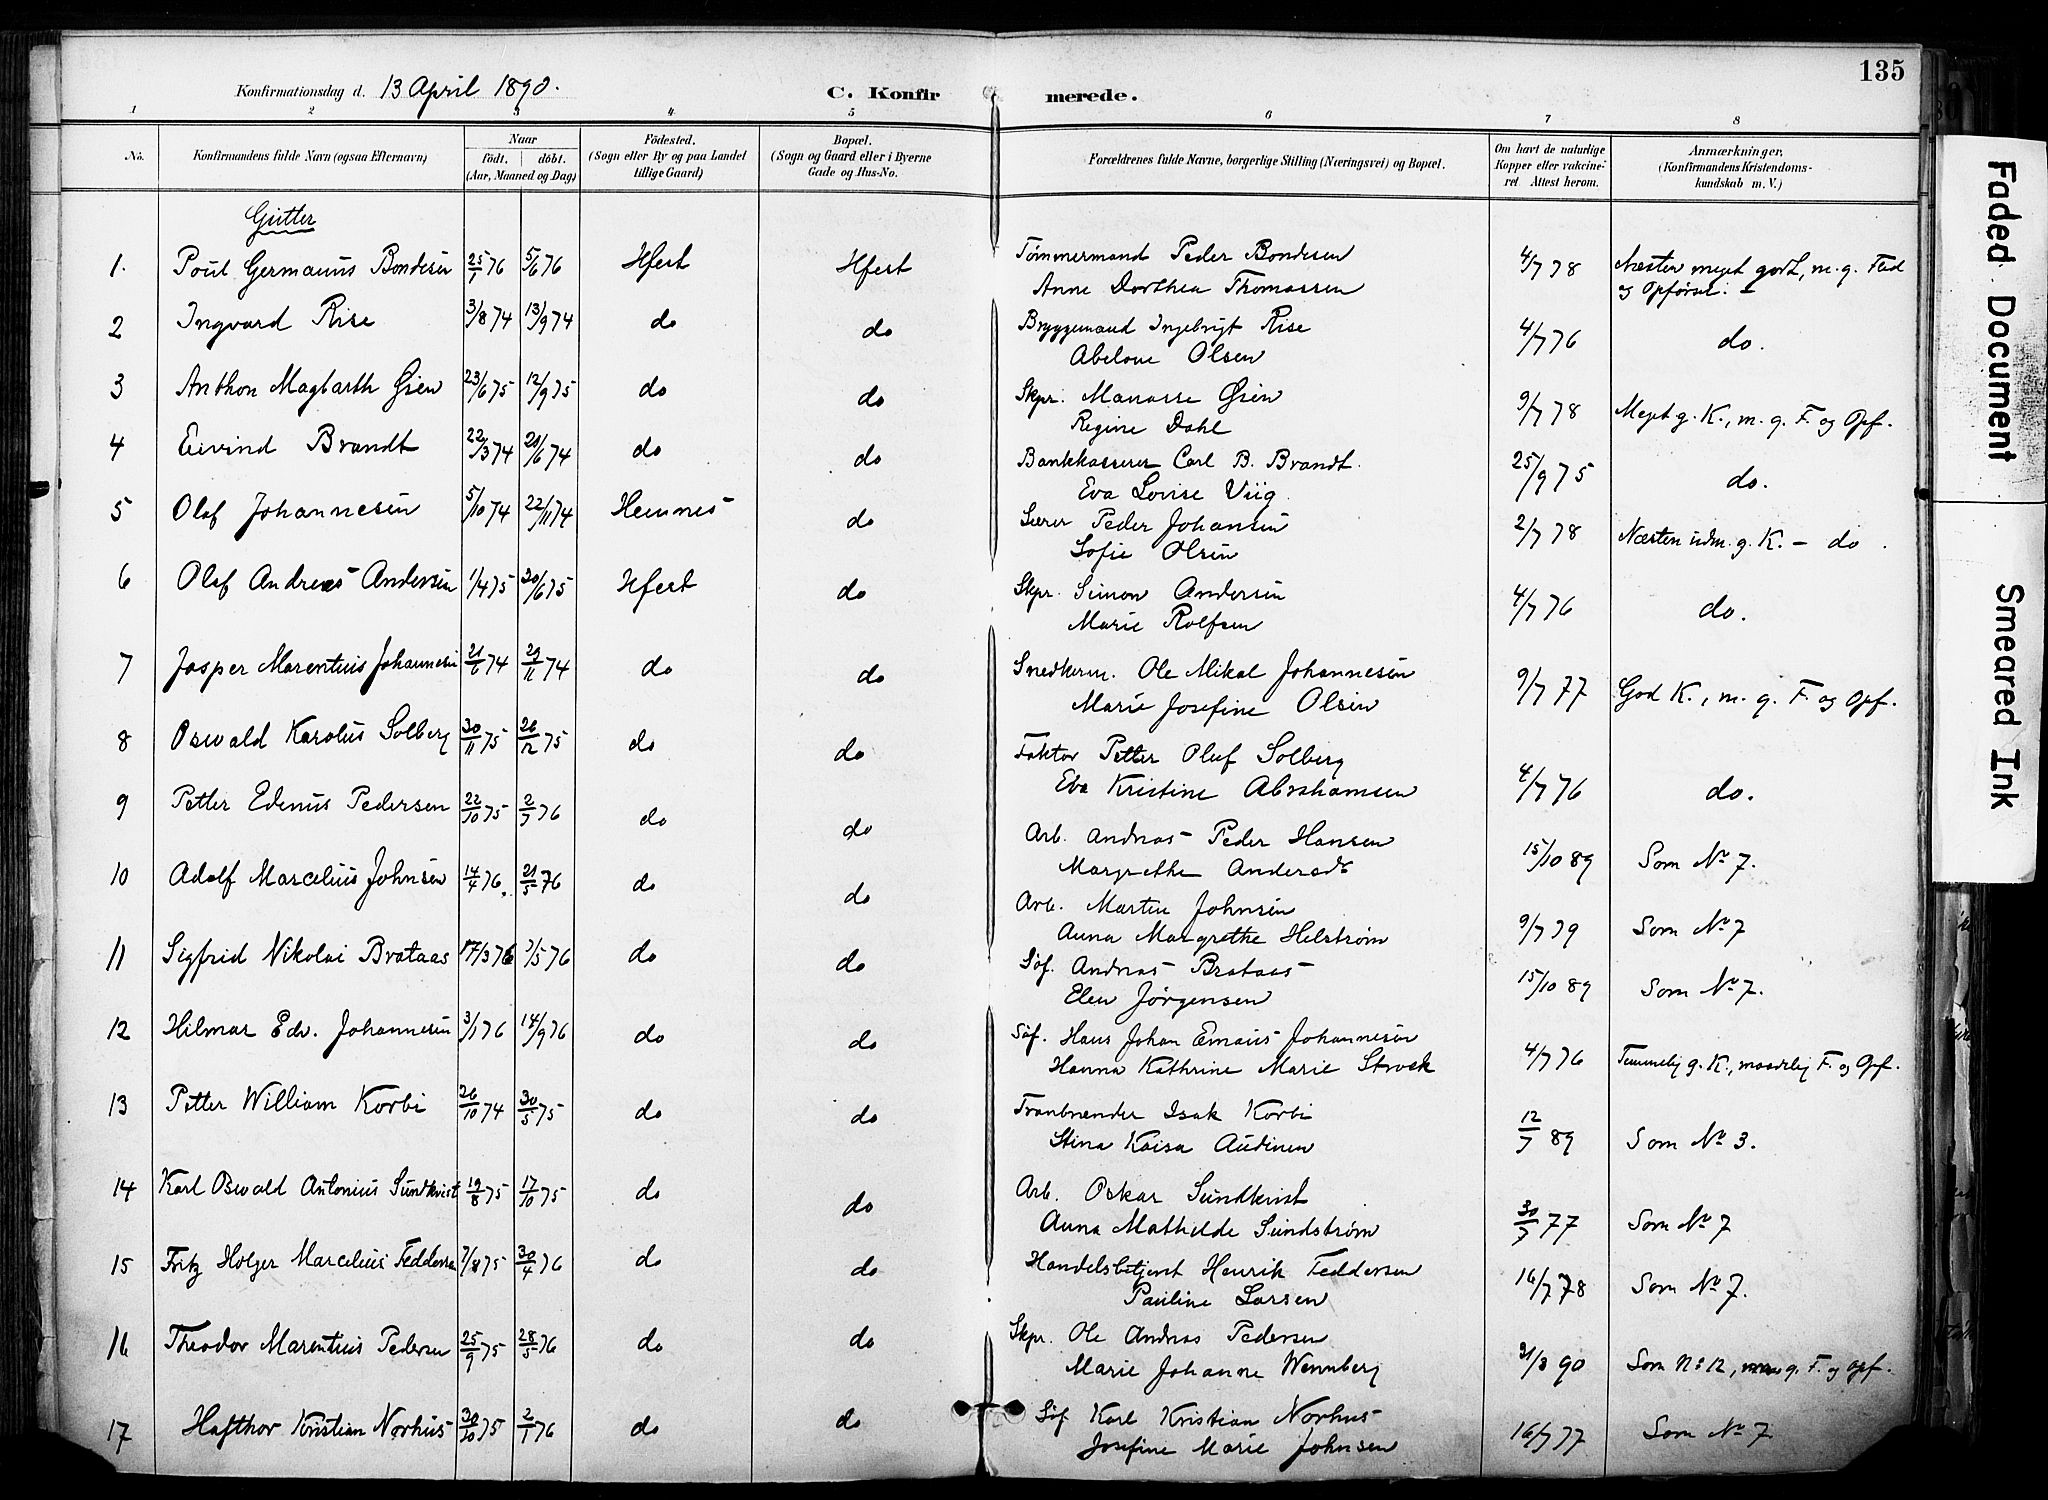 135
Konfirmationsdag d. 13 April 1890.
C. Konfirmerede.
1 2 3 4 5 6 7 8
No. Konfirmandens fulde Navn (ogsaa Efternavn) Naar födt. döbt. (Aar, Maaned og Dag) Födested. (Sogn eller By og paa Landet tillige Gaard) Bopæl. (Sogn og Gaard eller i Byerne Gade og Hus-No. Forældrenes fulde Navne, borgerlige Stilling (Næringsvei) og Bopæl. Om havt de naturlige Kopper eller vakcineret Attest herom. Anmærkninger, (Konfirmandens Kristendomskundskab m. V.)
Gutter
1. Poul Germanus Bondesen 25/1 76 5/6 76 Hfest Hfest Tømmermand Peder Bondesen 4/7 78 Næsten meget godt, m. g. Flid
Anne Dorthea Thomassen og Opførsel. -
2 Ingvard Rise 3/8 74 13/9 74 do do Bryggemand Ingebrigt Rise 4/7 76 do.
Abelone Olsen
3 Anthon Magbarth Øien 23/6 75 12/9 75 do do Skpr. Manasse Øien 9/7 78 Meget g. K., m. g. F. og Opf.
Regine Dahl
4 Eivind Brandt 22/3 74 21/6 74 do do Bankkasserer Carl B. Brandt. 25/9 75 do.
Eva Lovise Viig.
5 Olaf Johannesen 5/10 74 22/11 74 Hemnes do Lærer Peder Johansen 2/7 78 Næsten udm. g. K. - do.
Sofie Olsen
6 Olaf Andreas Andersen 1/4 75 20/6 75 Hfest do Skpr. Simon Andersen 4/7 76 do.
Marie Rolfsen
7 Jasper Marentius Johannesen 21/6 74 29/11 74 do do Snedkerm. Ole Mikal Johannesen 9/7 77 God K., m. g. F. og Opf.
Marie Josefine Olsen
8 Oswald Karolus Solberg 30/11 75 26/12 75 do do Faktor Petter Oluf Solberg 4/7 76 do.
Eva Kristine Abrahamsen
9 Petter Edenus Pedersen 22/10 75 2/7 76 do do Arb. Andreas Peder Hansen 15/10 89 Som No 7.
Margrethe Andersdr
10 Adolf Marcelius Johnsen 14/4 76. 21/5 76 do do Arb. Martin Johnsen 9/7 79 Som No 7
Anna Margrethe Helstrøm
11 Sigfrid Nikolai Brataas 17/3 76 7/5 76 do do Søf. Andreas Brataas 15/10 89 Som No 7.
Elen Jørgensen
12 Hilmar Edv. Johannesen 3/1 76 14/9 76 do do Søf. Hans Johan Emaus Johannesen 4/7 76 Temmelig g. K., maadelig F. og Opf.
Hanna Kathrine Marie Strock
13 Petter William Korbi 26/10 74 30/5 75 do do Tranbrænder Isak Korbi 12/7 89 Som No 3.
Stina Kaisa Audinen
14 Karl Oswald Antonius Sundkvist 19/8 75 17/10 75 do do Arb. Oskar Sundkvist 30/7 77 Som No 7
Anna Mathilde Sundstrøm
15 Fritz Holger Marcelius Feddersen 7/8 75 30/4 76 do do Handelsbetjent Henrik Feddersen 16/7 78 Som No 7.
Pauline Larsen
16 Theodor Marentius Pedersen 25/9 75 28/5 76 do do Skpr. Ole Andreas Pedersen 31/3 90 Som No 12, g. F. og Opf.
Marie Johanne Wennberg
17 Hafthor Kristian Norhus 30/10 75 2/1 76 do do Søf Karl Kristian Norhus 16/7 77 Som No 7
Josefine Marie Johnsen
Faded Document
Smeared Ink